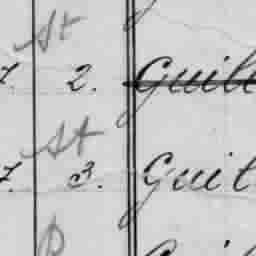 St
7. 2. Guil
St
7. 3. Guil